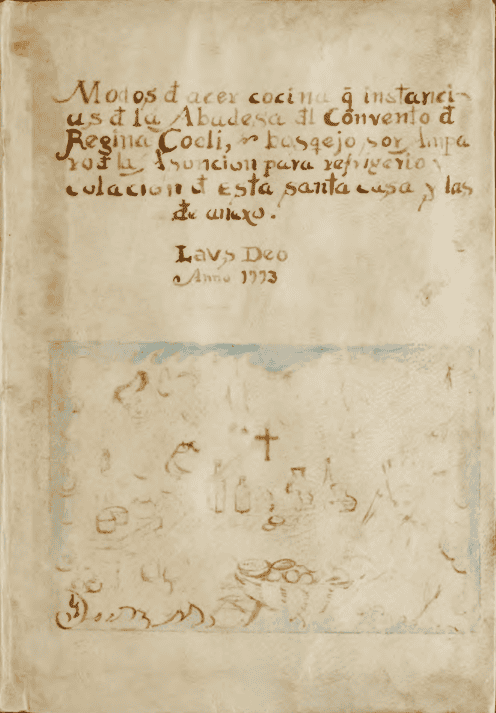 Modos đ acer cocina q̄ instanci-
as đ la Abadesa đl Convento đ
Regina Coeli, bosqejo sor Ampa
ro đ la Asuncion para refrigerio y
colacion đ Esta santa casa y las
đe anexo.
Laus Deo
Anno 1773